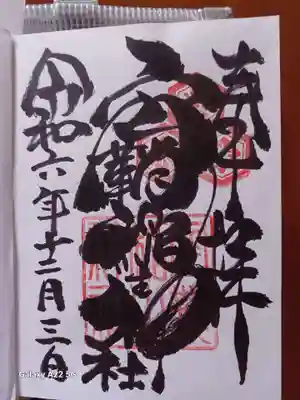 奉拝
空鞘稲生神社
令和六年十二月三日
Galaxy A22 5G